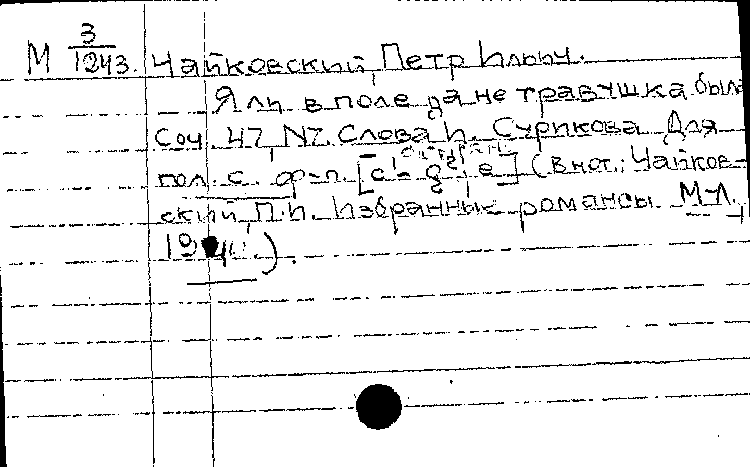 М 3/1243. Чайковский, Петр Ильич.
Я ли в поле да не травушка была
Соч. 47, N7. Слова И. Сурикова. Для
гол. с ф-п. [c¹- е] (В нот.: Чайков-
ский, П.И. Избранные романсы. М-Л.,
19).